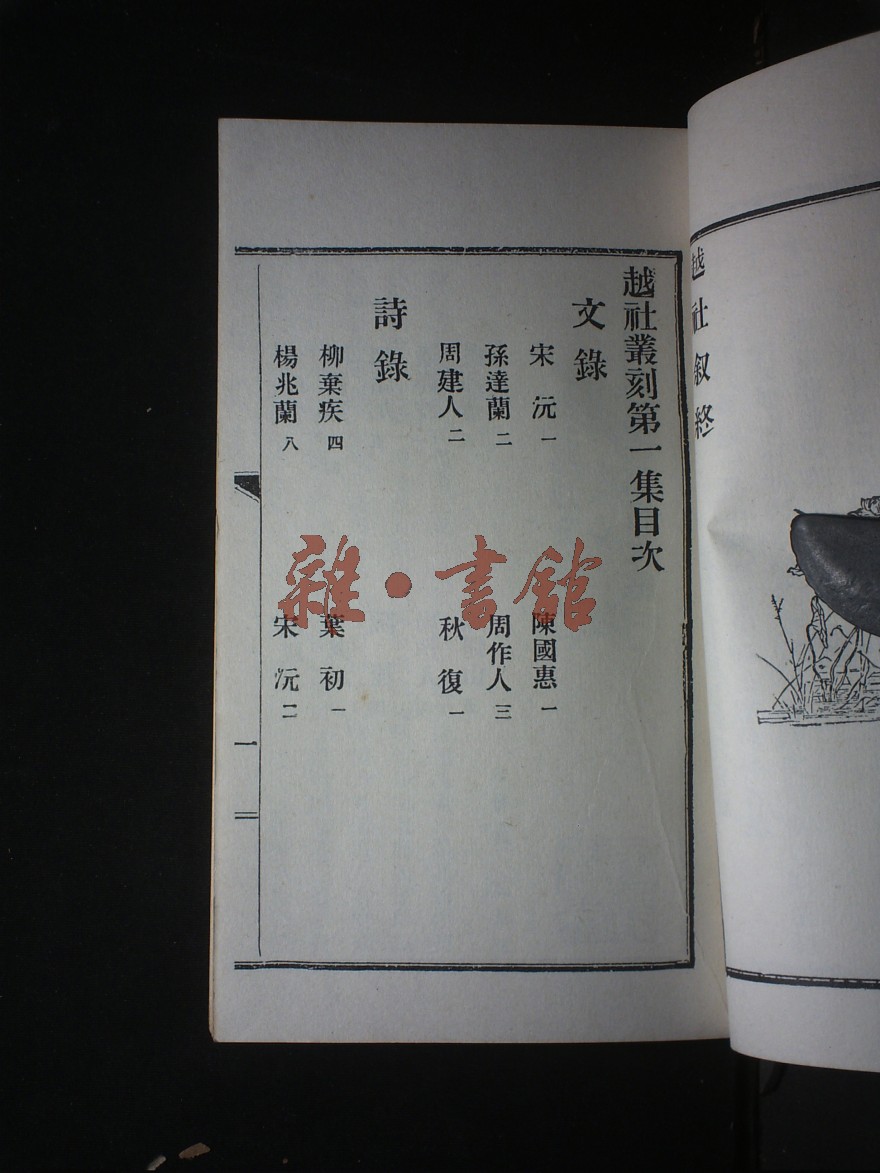 越社叙終
越社叢刻第一集目次
文錄
宋沅一　陳國惠一
孫達蘭二　周作人三
周建人二　秋復一
詩錄
柳棄疾四　葉初一
楊兆蘭八　宋沅二
一
雜·書館